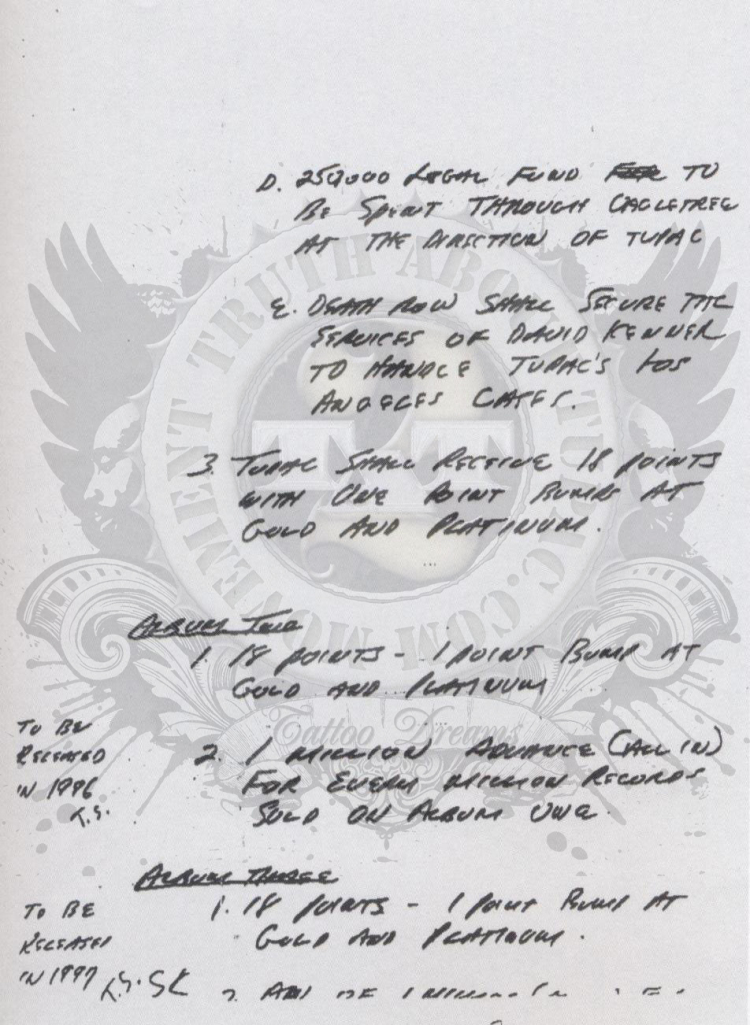 D. 250,000 LEGAL FUND TO
BE SPENT THROUGH OAGLETREE
AT THE DIRECTION OF TUPAC
E. DEATH ROW SHALL SECURE THE
SERVICES OF DAVID KENNER
TO HANDLE TUPAC'S LOS
ANGELES CASES.
3. TUPAC SHALL RECEIVE 18 POINTS
WITH ONE POINT BUMPS AT
GOLD AND PLATINUM.
ALBUM TWO
1. 18 POINTS - 1 POINT BUMP AT
GOLD AND PLATINUM
TO BE
RELEASED
IN 1996
T.S.
2. 1 MILLION ADVANCE (ALL IN)
FOR EVERY MILLION RECORDS
SOLD ON ALBUM ONE.
ALBUM THREE
TO BE
RELEASED
IN 1997 T.S. SK
1. 18 POINTS - 1 POINT BUMP AT
GOLD AND PLATINUM.
TRUTH ABOUT TUPAC.COM MOVEMENT
TT
2
Tattoo Dreams